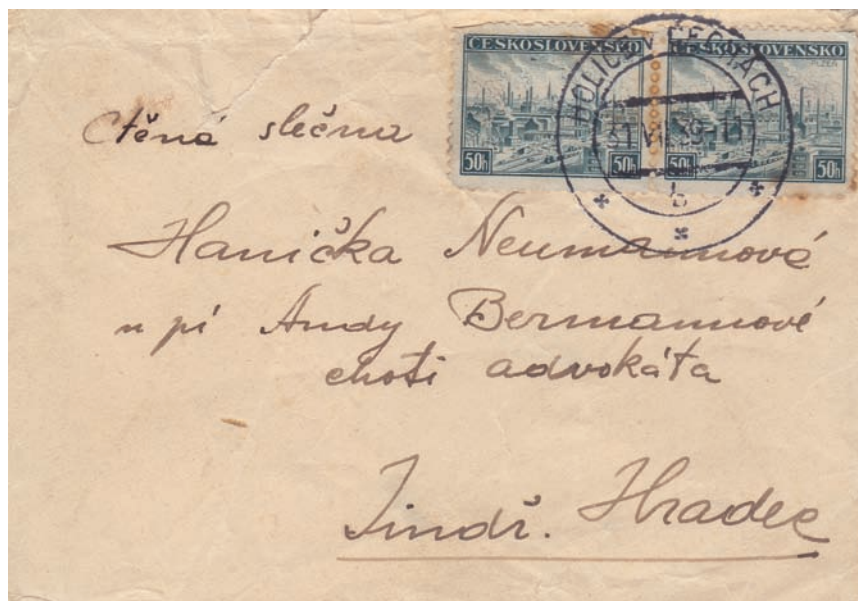 ČESKOSLOVENSKO ČESKOSLOVENSKO
PLZEŇ
50h 50h 50h 50h
HOLICE V ČECHÁCH
b
Ctěná slečna
Hanička Neumannová
u pí Andy Bermannové
choti advokáta
Jindř. Hradec